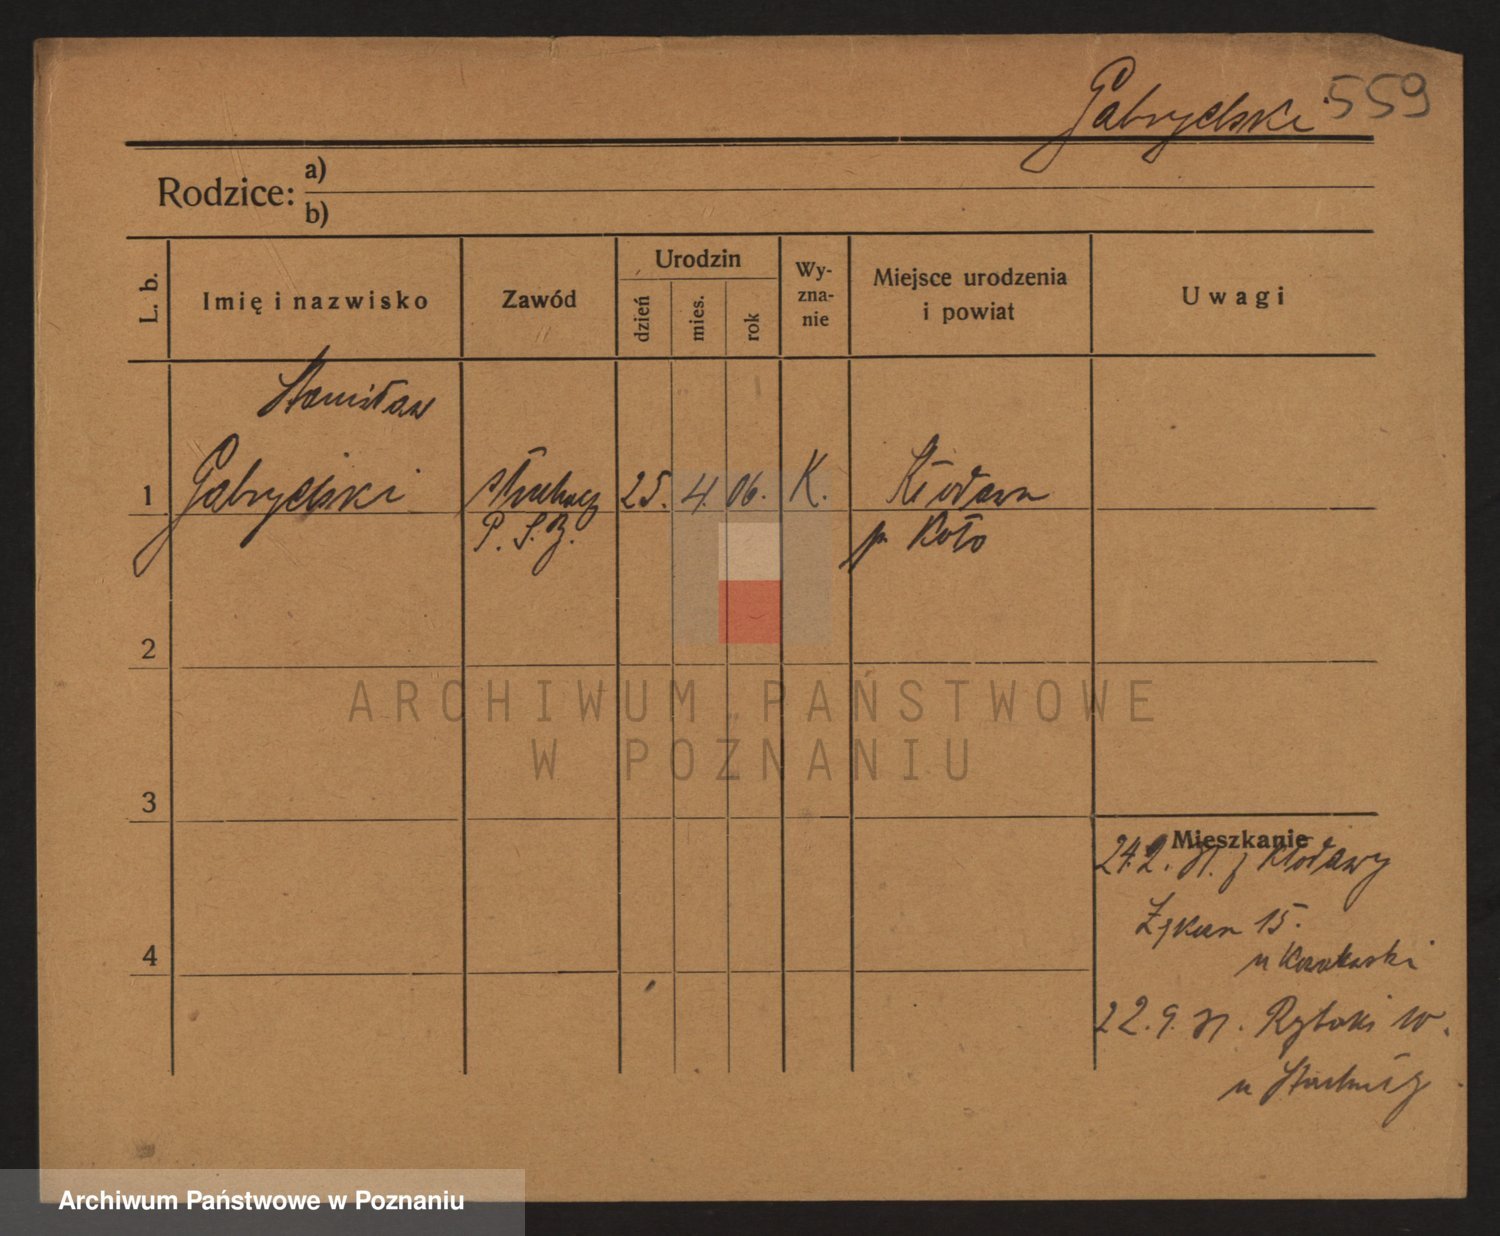 Gabryelski 559
Rodzice: a)
b)
L. b.
Imię i nazwisko
Zawód
Urodzin
dzień
mies.
rok
Wy-
zna-
nie
Miejsce urodzenia
i powiat
Uwagi
Stanisław
1 Gabryelski słuchacz 25. 4. 06. K. Kłodawa
P. S. B. p. Koło
2
3
4
Mieszkanie
24.2. 31. z Kłodawy
15.
u
22. 9. 31. Rybaki
u
ARCHIWUM PAŃSTWOWE
W POZNANIU
Archiwum Państwowe w Poznaniu